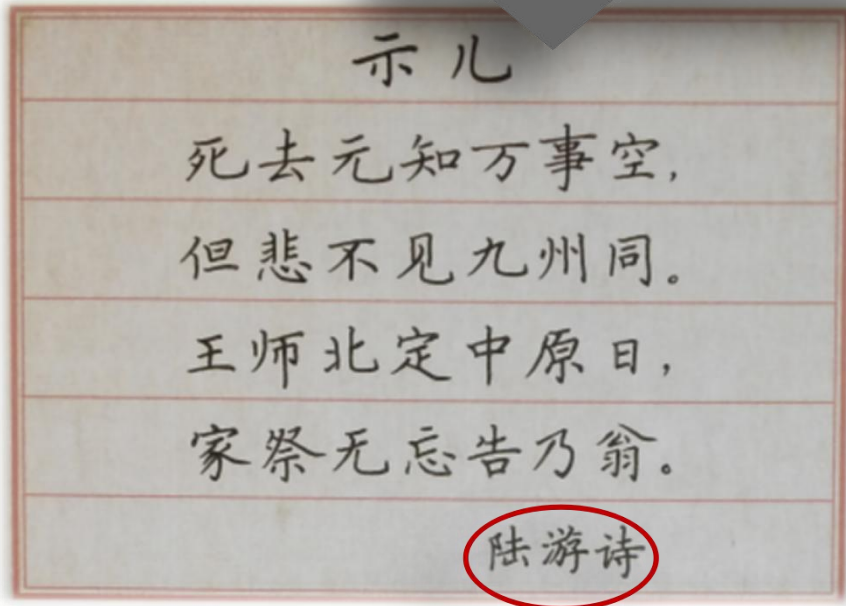 示儿
死去元知万事空，
但悲不见九州同。
王师北定中原日，
家祭无忘告乃翁。
陆游诗